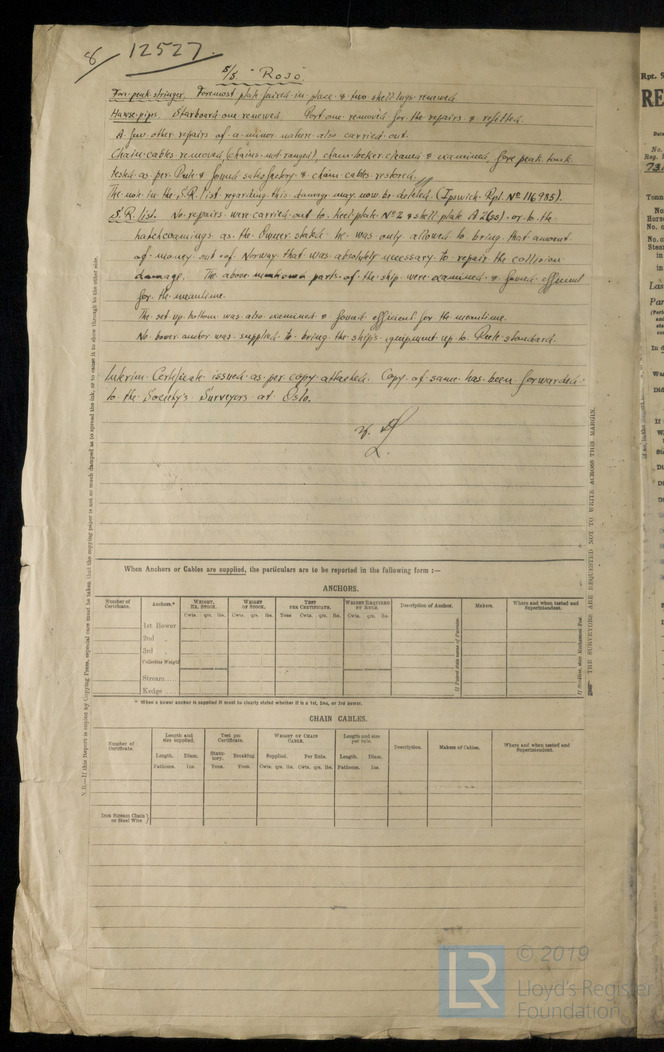 8/ 12527.
S/S. "Rosö."
Fore-peak-stringer. Foremost plate faired in place & two shell lugs renewed
Hawse pipes. Starboard one renewed. Port one removed for the repairs & refitted.
A few other repairs of a minor nature also carried out.
Chain cables removed (chains not ranged), chain locker cleaned & examined, fore peak tank
tested as per Rule & found satisfactory & chain cables restored.
The note in the S.R. list regarding this damage may now be deleted. (Ipswich Rpt. No 116985).
S.R. list. No repairs were carried out to keel plate No 2 & shell plate A 2(s) or to the
hatchcoamings as the Owner stated he was only allowed to bring that amount
of money out of Norway that was absolutely necessary to repair the collision
damage. The above parts of the ship were examined & found efficient
for the meantime.
The set up bottom was also examined & found efficient for the meantime.
No bower anchor was supplied to bring the ship's equipment up to Rule standard.
Interim Certificate issued as per copy attached. Copy of same has been forwarded
to the Society's Surveyors at Oslo.
When Anchors or Cables are supplied, the particulars are to be reported in the following form :—
ANCHORS.
Number of Certificate. Anchors.* WEIGHT, EX. STOCK. WEIGHT OF STOCK. TEST PER CERTIFICATE. WEIGHT REQUIRED BY RULE. Description of Anchor. Makers. Where and when tested and Superintendent.
Cwts. qrs. lbs. Cwts. qrs. lbs. Tons Cwts. qrs. lbs. Cwts. qrs. lbs.
1st Bower
2nd "
3rd "
Collective Weight
Stream...
Kedge
* When a bower anchor is supplied it must be clearly stated whether it is a 1st, 2nd, or 3rd bower.
CHAIN CABLES.
Number of Certificate. Length and size supplied. Test per Certificate. WEIGHT OF CHAIN CABLE. Length and size per rule. Description. Makers of Cables. Where and when tested and Superintendent.
Length. Diam. Statutory. Breaking. Supplied. Per Rule. Length. Diam.
Fathoms. Ins. Tons. Tons. Cwts. qrs. lbs. Cwts. qrs. lbs. Fathoms. Ins.
Iron Stream Chain or Steel Wire
N.B.—If this Report is copied by Copying Press, especial care must be taken that the copying paper is not so much damped as to spread the ink, or to cause it to show through to the other side.
THE SURVEYORS ARE REQUESTED NOT TO WRITE ACROSS THIS MARGIN.
Rpt. 5
RE
No.
Reg.
Tonn
LR
© 2019
Lloyd's Register
Foundation